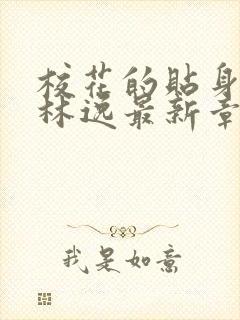 校花的贴身
林逸最新章
我是如意